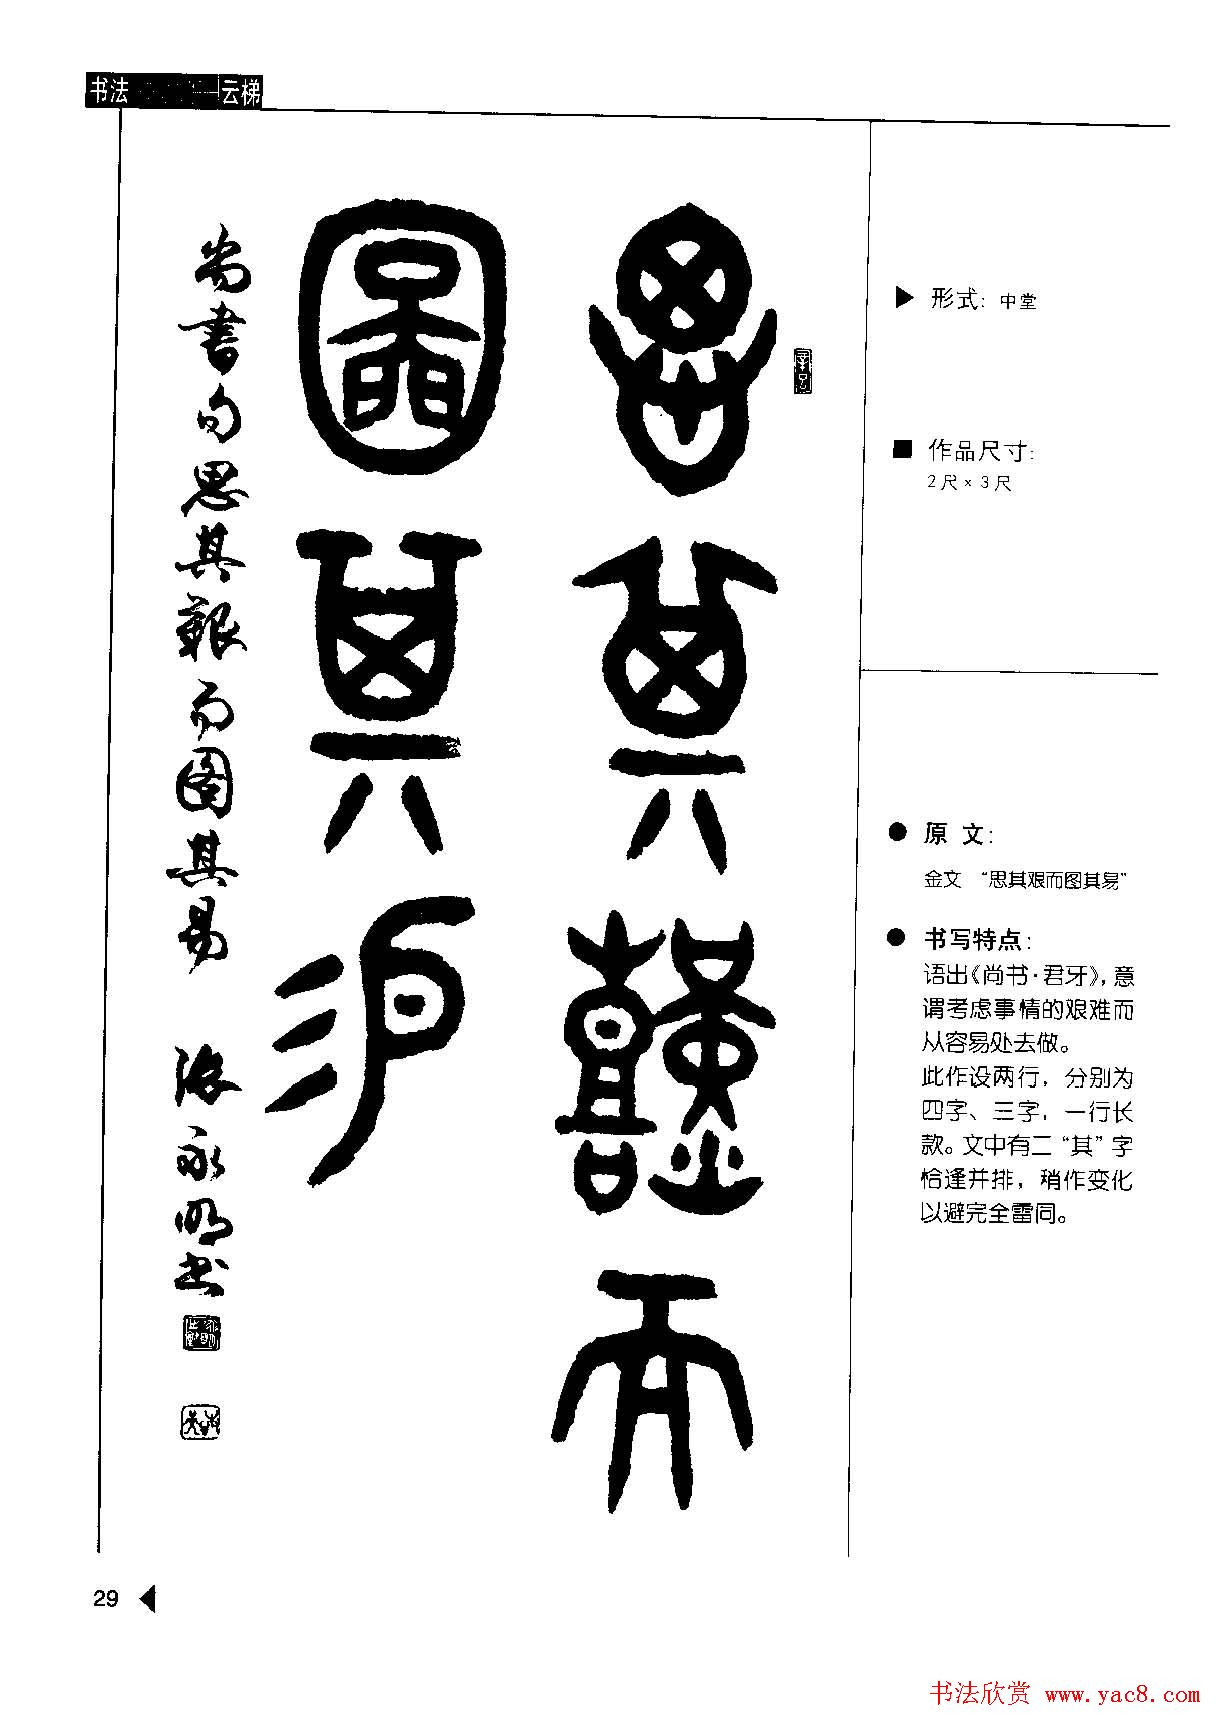 书法
云梯
思其艱而
圖其易
尚書句思其艱而圖其易 张永明书
▶ 形式：中堂
■ 作品尺寸：
2尺×3尺
● 原 文：
金文 “思其艰而图其易”
● 书写特点：
语出《尚书·君牙》，意
谓考虑事情的艰难而
从容易处去做。
此作设两行，分别为
四字、三字，一行长
款。文中有二“其”字
恰逢并排，稍作变化
以避完全雷同。
29
书法欣赏 www.yac8.com